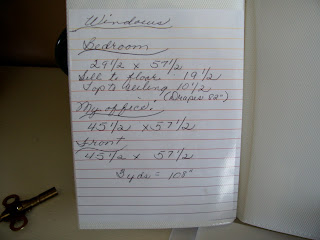 Windows
Bedroom
29 1/2 x 57 1/2
Sill to floor 19 1/2
Top to ceiling 10 1/2
(Drapes 82")
My office.
45 1/2 x 57 1/2
Front
45 1/2 x 57 1/2
3 yds = 108"